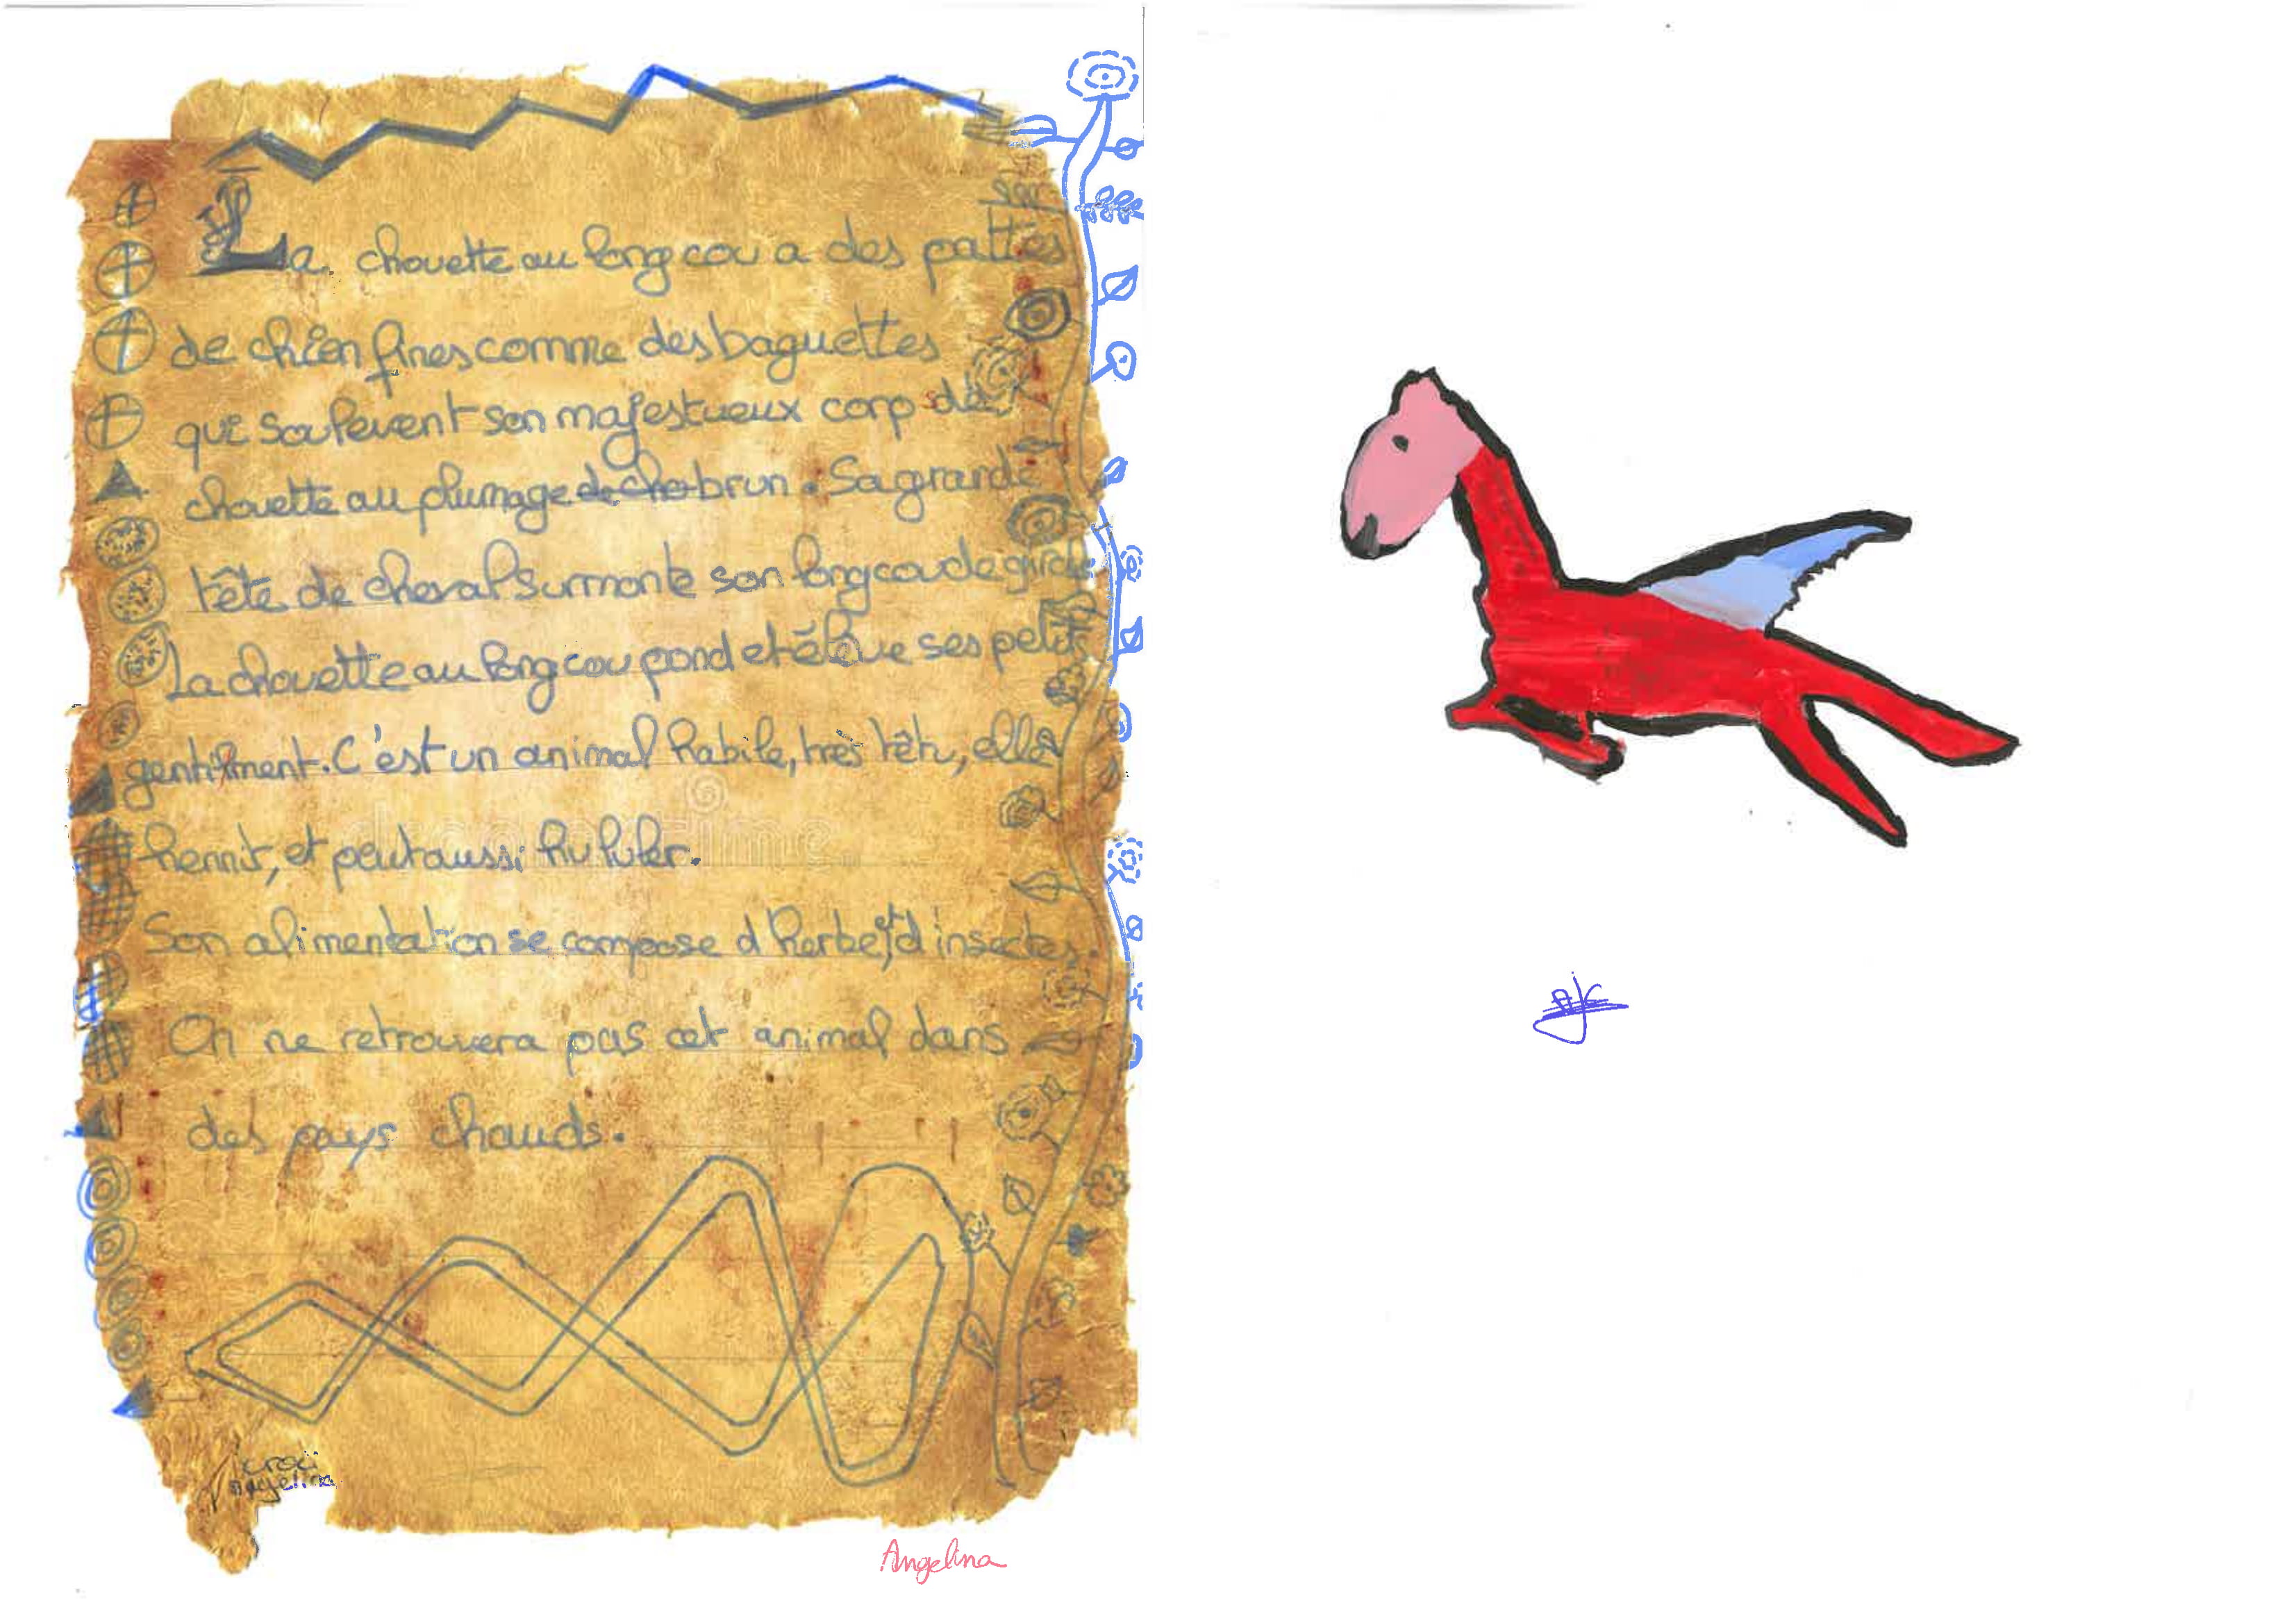 La chouette au long cou a des pattes
de chien fines comme des baguettes
qui soulèvent son majestueux corp de
chouette au plumage de cho brun. Sa grande
tête de cheval surmonte son long cou de girafe.
La chouette au long cou pond et élève ses petit
gentilment. C'est un animal habile, très têtu, elle
hennit, et peut aussi hululer.
Son alimentation se compose d'herbe et d'insectes.
On ne retrouvera pas cet animal dans
des pays chauds.
croci
angelina
Angelina
AJC